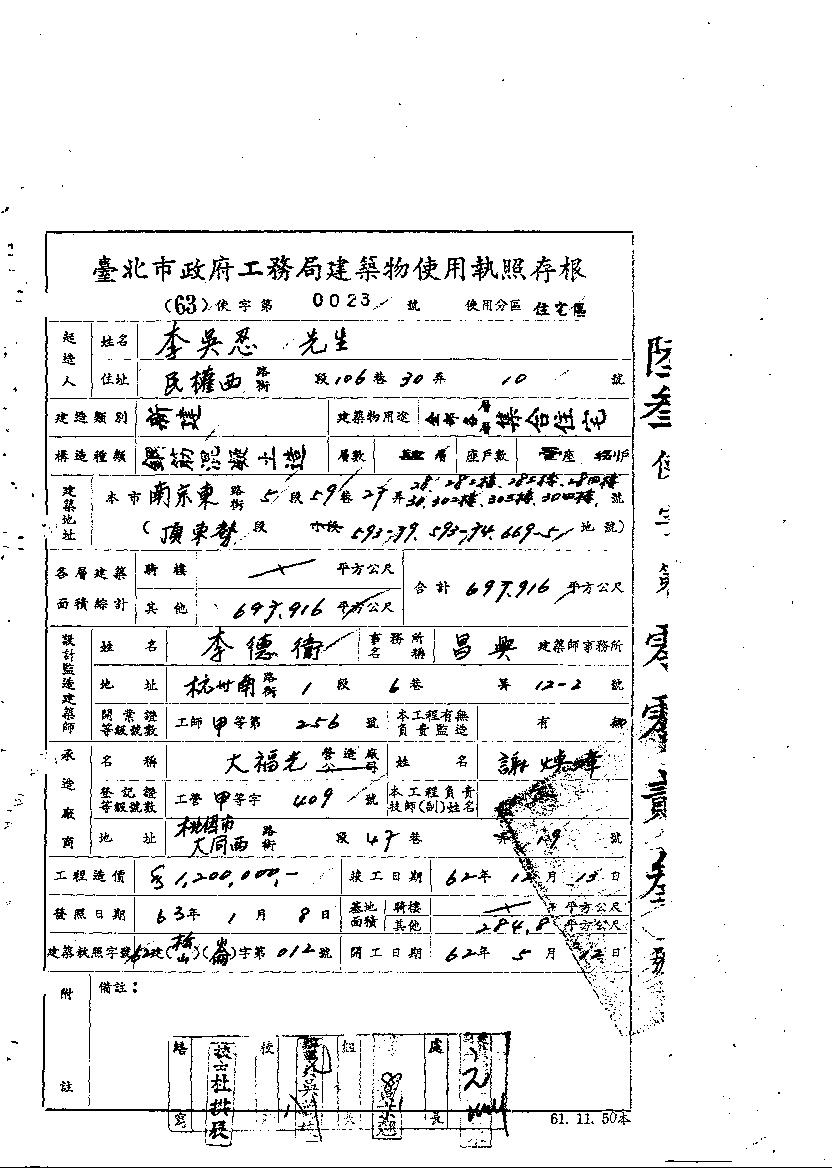 臺北市政府工務局建築物使用執照存根
(63)使字第 0023 號 使用分區 住宅區
起造人 姓名 李吳忍 先生
住址 民權西 路街 段 106 巷 30 弄 10 號
建造類別 新建 建築物用途 全部各層 集合住宅
構造種類 鋼筋混凝土造 層數 層 座戶數 座
建築地址 本市 南京東 路街 5 段 59 巷 27 弄 28, 28二樓, 28三樓, 28四樓 30, 30二樓, 30三樓, 30四樓, 號
(頂東勢 段 小段 593-39, 593-74, 669-5 地號)
各層建築面積綜計 騎樓 平方公尺 合計 697.916 平方公尺
其他 697.916 平方公尺
設計監造建築師 姓名 李德衛 事務所名稱 昌興 建築師事務所
地址 杭州南 路街 1 段 6 巷 弄 12-2 號
開業證等級號數 工師甲等第 256 號 本工程有無負責監造 有
承造廠商 名稱 大福光 營造廠公司 姓名 謝
登記證等級號數 工營甲等字 409 號 本工程負責技師(副)姓名
地址 桃園市大同西 路街 段 47 巷 弄 19 號
工程造價 $1,200,000,- 竣工日期 62年 12月 13日
發照日期 63年 1月 8日 基地面積 騎樓 平方公尺
其他 284.8 平方公尺
建築執照字號 62建(松山)(崙)字第 012 號 開工日期 62年 5月 12日
附註 備註：
繕寫 校 組長 處長
61. 11. 50本
陸叁使字第零零貳叁號